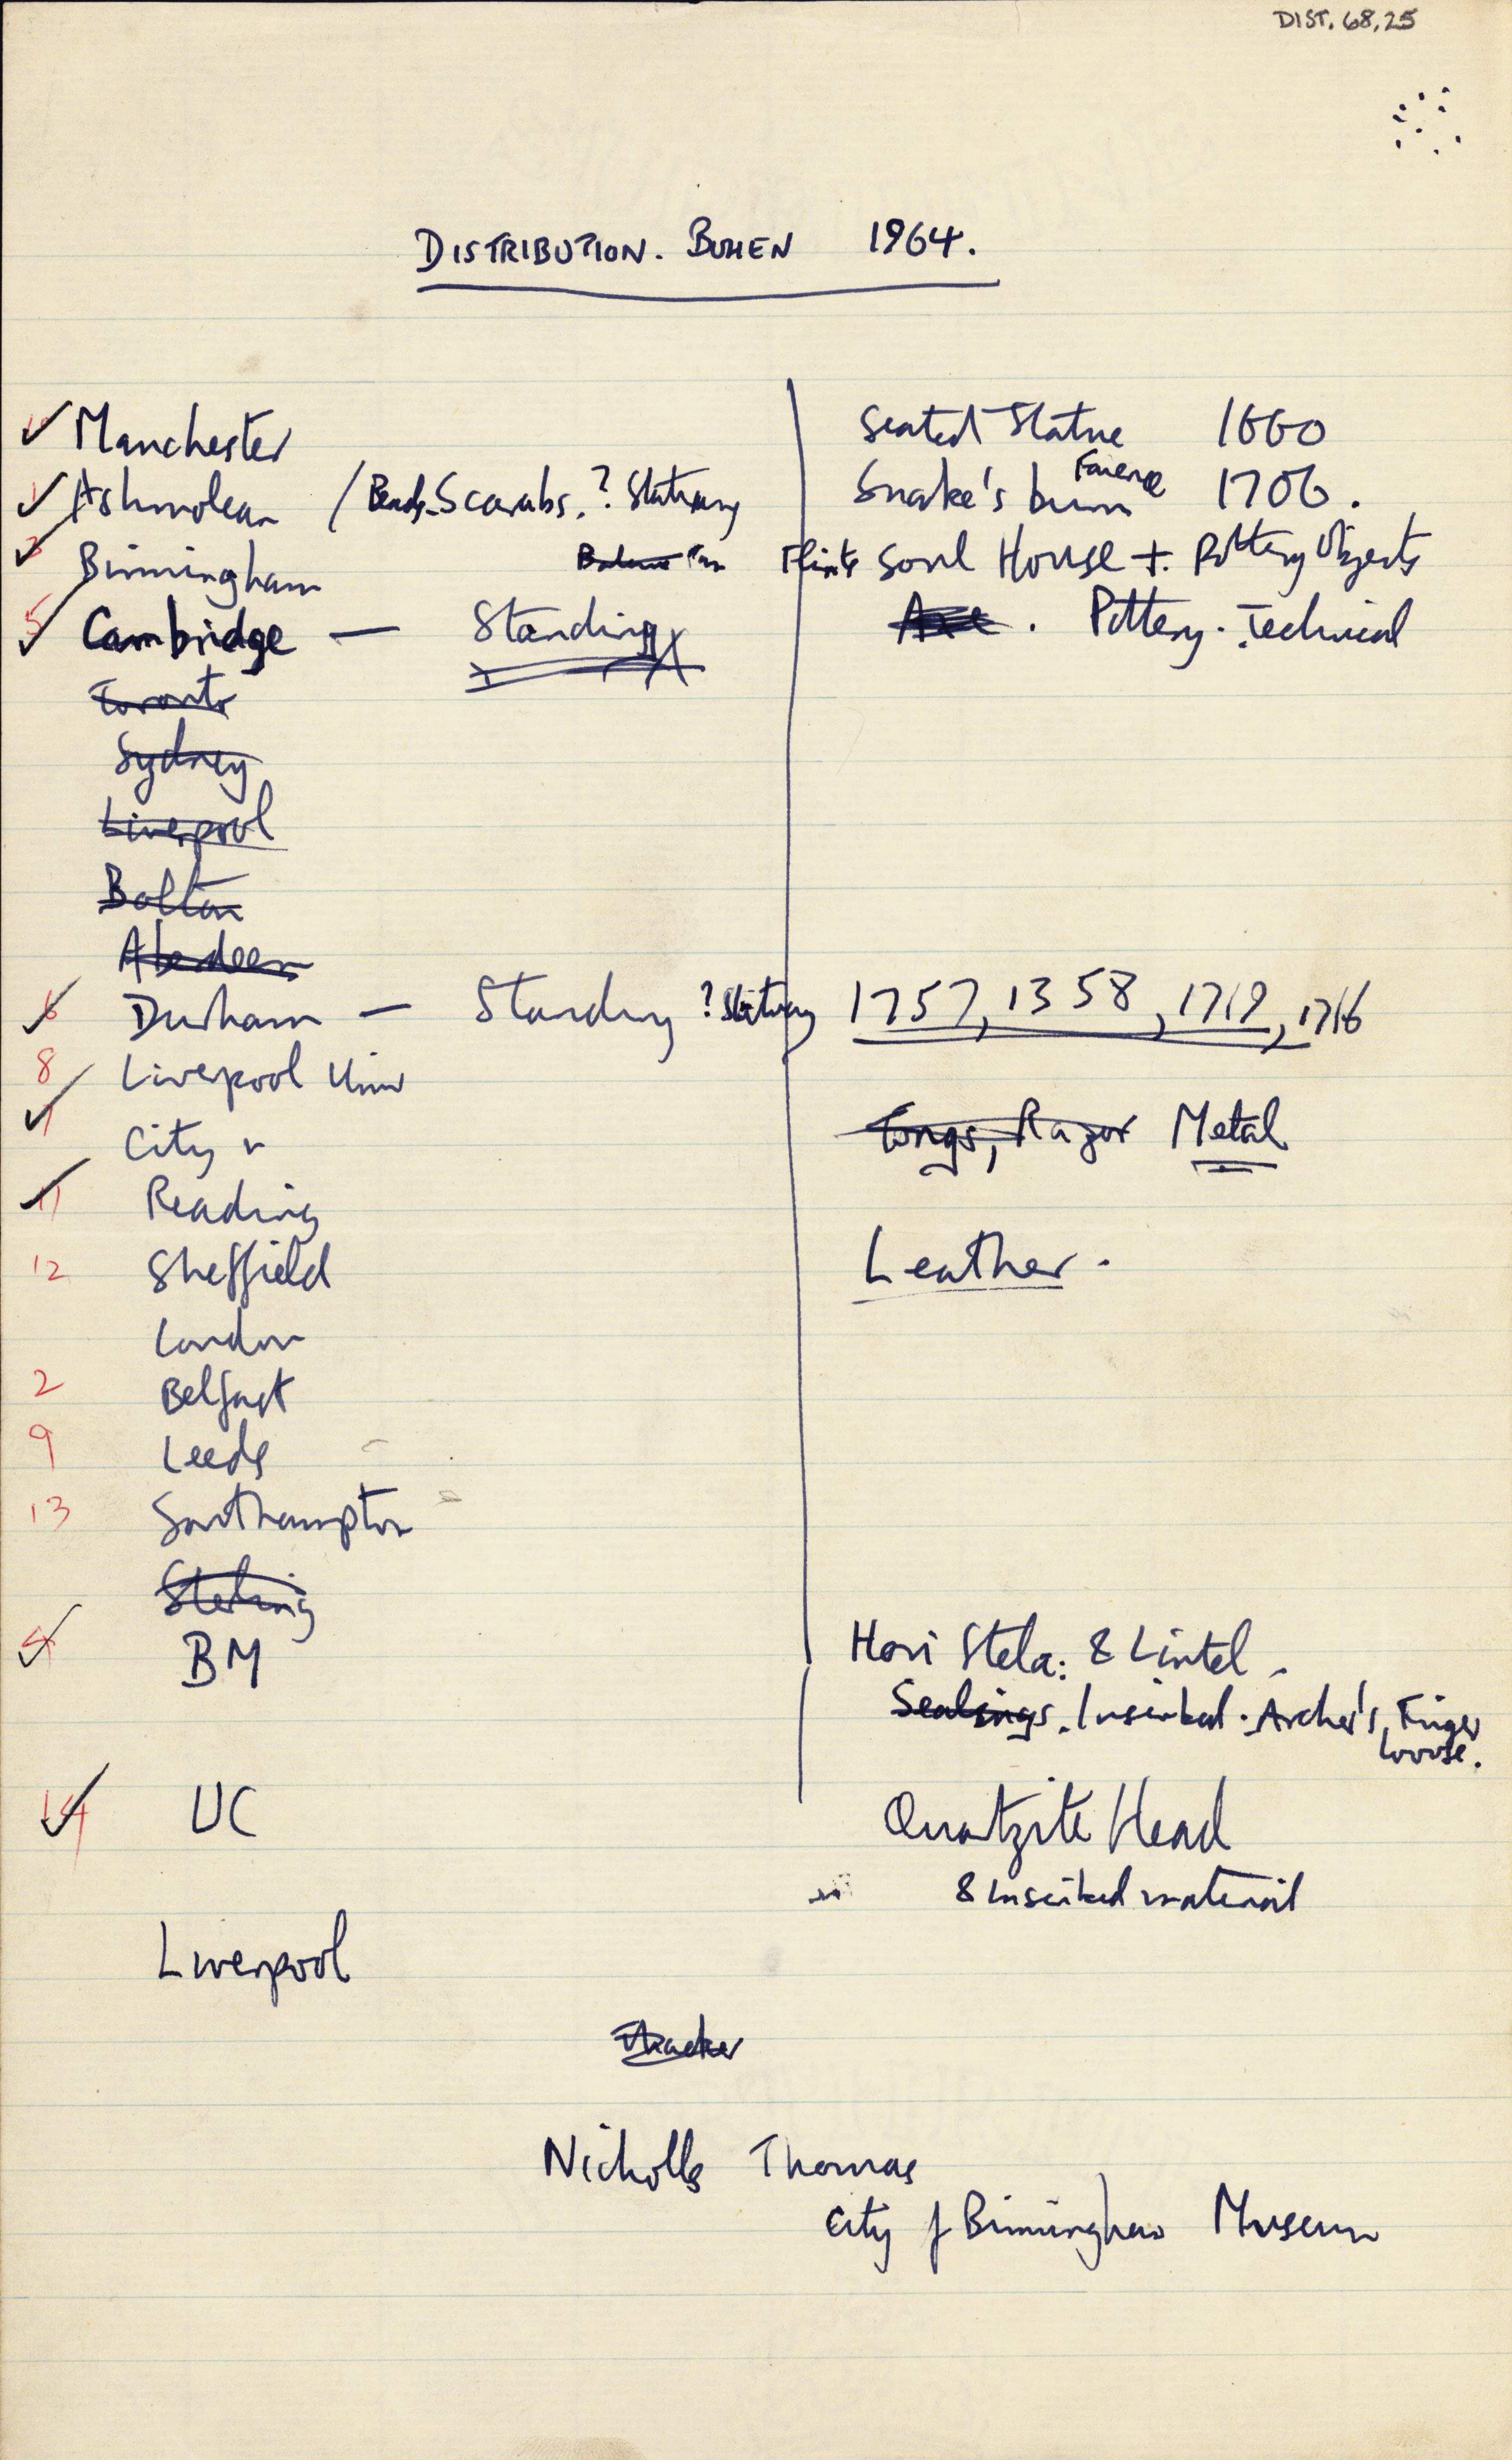 DIST. 68,25
DISTRIBUTION. BUHEN 1964.
Manchester Seated Statue 1660
1 Ashmolean / Beads. Scarabs. ? Statuary Snake's burn Faience 1706.
3 Birmingham Flints Soul House + Pottery Objects
5 Cambridge — Standing Axe. Pottery. Technical
Toronto
Sydney
Liverpool
Bolton
Aberdeen
6 Durham — Standing ? Statuary 1757, 1358, 1719, 1716
8 Liverpool Univ
7 City " Tongs, Razor Metal
11 Reading
12 Sheffield Leather.
London
2 Belfast
9 Leeds
13 Southampton
BM Hori Stela: & Lintel.
Sealings. Inscribed. Archer's Finger
loose.
14 UC Quartzite Head
& Inscribed material
Liverpool
Nicholls Thomas
City of Birmingham Museum